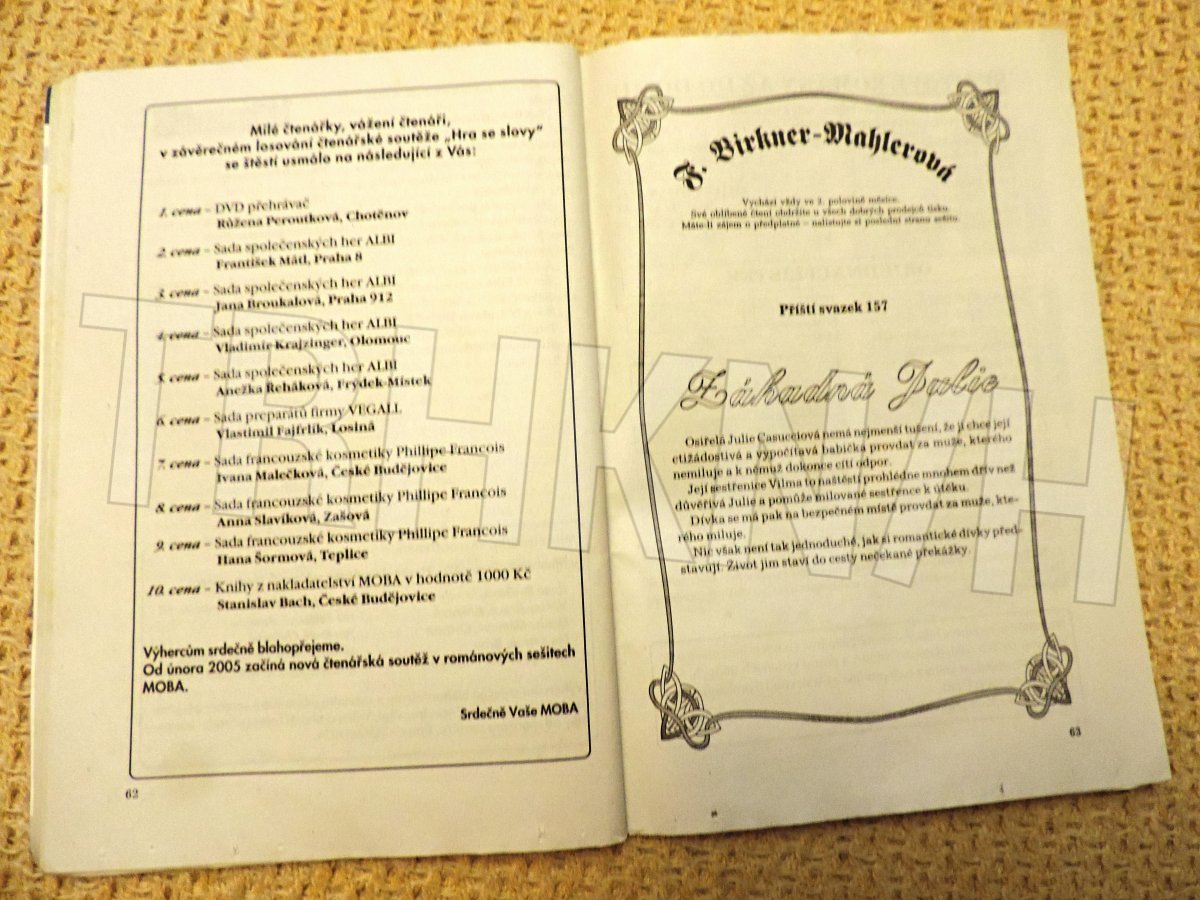 Milé čtenářky, vážení čtenáři,
v závěrečném losování čtenářské soutěže „Hra se slovy“
se štěstí usmálo na následující z Vás:
1. cena – DVD přehrávač
Růžena Peroutková, Chotěnov
2. cena – Sada společenských her ALBI
František Mátl, Praha 8
3. cena – Sada společenských her ALBI
Jana Broukalová, Praha 912
4. cena – Sada společenských her ALBI
Vladimír Krajzinger, Olomouc
5. cena – Sada společenských her ALBI
Anežka Řeháková, Frýdek-Místek
6. cena – Sada preparátů firmy VEGALL
Vlastimil Fajfrlík, Losiná
7. cena – Sada francouzské kosmetiky Phillipe Francois
Ivana Malečková, České Budějovice
8. cena – Sada francouzské kosmetiky Phillipe Francois
Anna Slavíková, Zašová
9. cena – Sada francouzské kosmetiky Phillipe Francois
Hana Šormová, Teplice
10. cena – Knihy z nakladatelství MOBA v hodnotě 1000 Kč
Stanislav Bach, České Budějovice
Výhercům srdečně blahopřejeme.
Od února 2005 začíná nová čtenářská soutěž v románových sešitech
MOBA.
Srdečně Vaše MOBA
62
F. Birkner-Mahlerová
Vychází vždy ve 2. polovině měsíce.
Své oblíbené čtení obdržíte u všech dobrých prodejců tisku.
Máte-li zájem o předplatné – nalistujte si poslední stranu sešitu.
Příští svazek 157
Záhadná Julie
Osiřelá Julie Casucciová nemá nejmenší tušení, že ji chce její
ctižádostivá a vypočítavá babička provdat za muže, kterého
nemiluje a k němuž dokonce cítí odpor.
Její sestřenice Vilma to naštěstí prohlédne mnohem dřív než
důvěřivá Julie a pomůže milované sestřence k útěku.
Dívka se má pak na bezpečném místě provdat za muže, kte-
rého miluje.
Nic však není tak jednoduché, jak si romantické dívky před-
stavují. Život jim staví do cesty nečekané překážky.
63
TRHKNIH